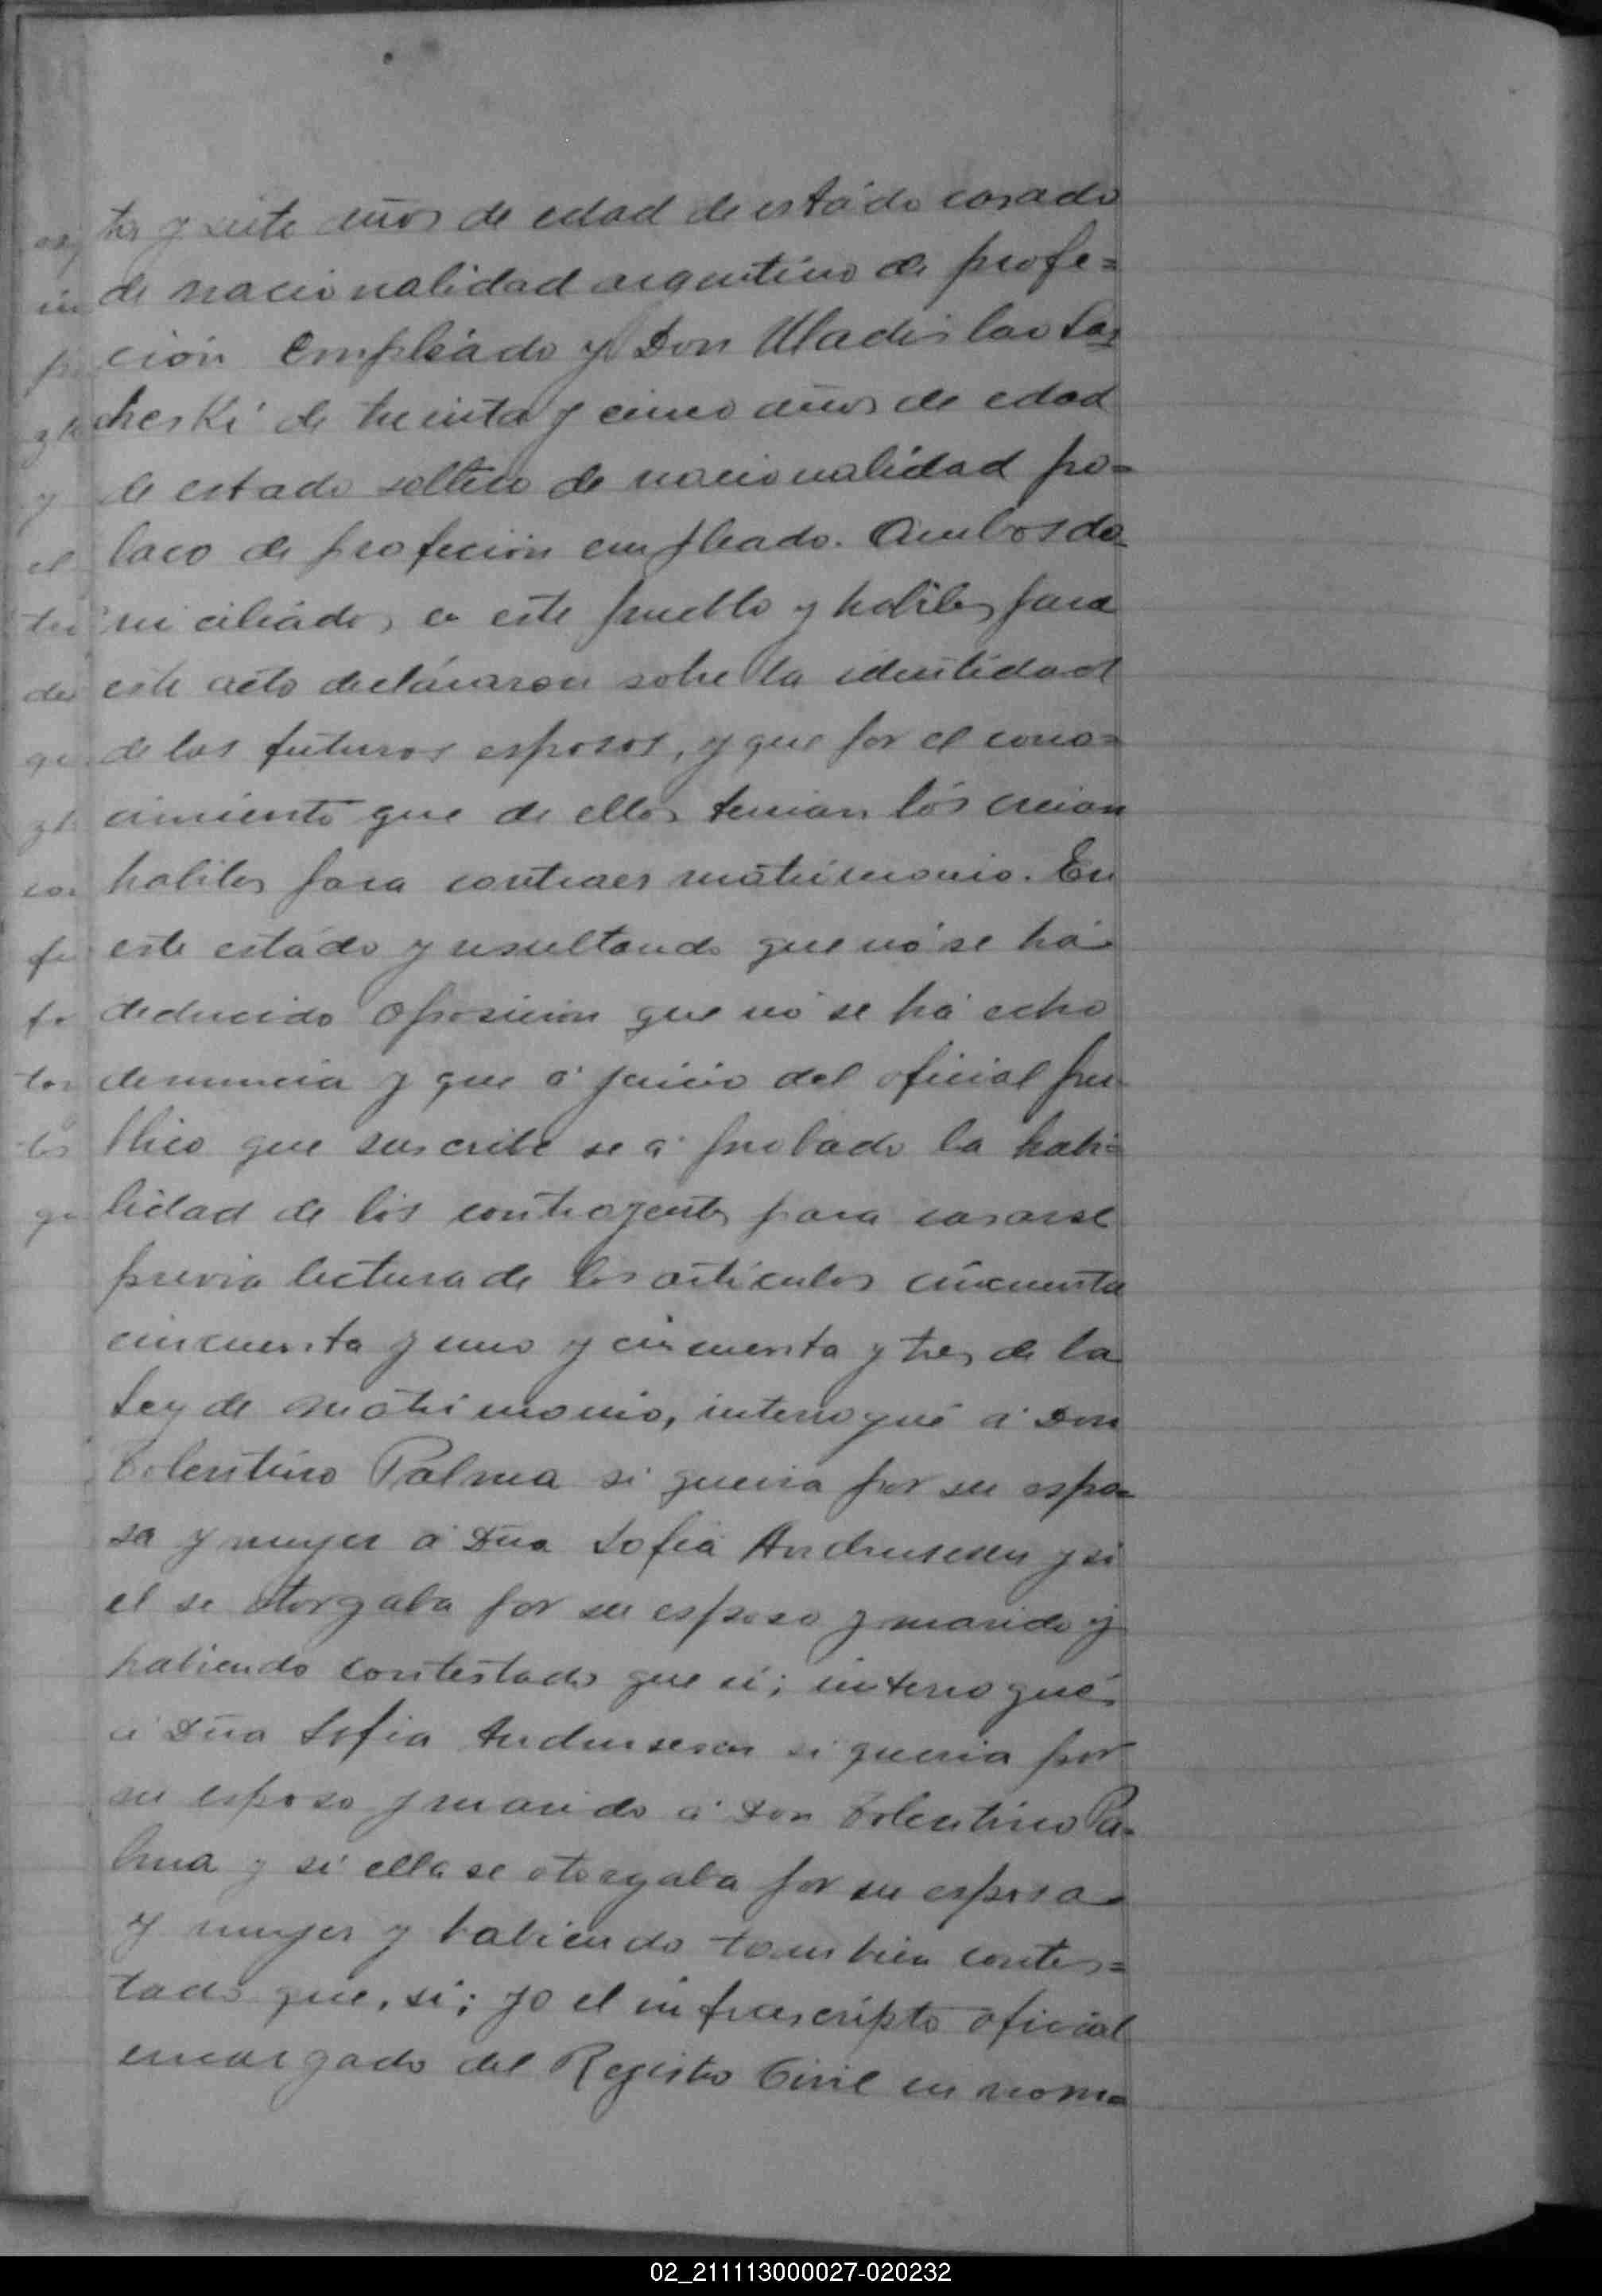 ta y siete años de edad de estádo casado
de nacionalidad argentino de profe=
ción Empleádo y Don Uladislao Las
cheski de treinta y cinco años de edad
de estado soltero de nacionalidad po=
laco de profeción empleado. Ambos do=
miciliádos en este pueblo y habiles para
este acto decláraron sobre la identidad
de los futuros esposos, y que por el cono=
cimiento que de ellos tenian lós creian
habiles para contraer matrimonio. En
este estádo y resultando que nó se há
deducido oposicion que nó se há echo
denuncia y que á juicio del oficial pu
blico que suscribe se á probado la habi=
lidad de lós contrayentes para casarse
previa lectura de los artículos cincuenta
cincuenta y uno y cincuenta y tres de la
Ley de matrimonio, interrogué á Don
Tolentino Palma si queria por su espo=
sa y mujer á Dña Sofia Andrusesen y si
el se otorgaba por su esposo y marido y
habiendo contestado que si; interrogué
á Dña Sofia Andrusesen si queria por
su esposo y marido á Don Tolentino Pa=
lma y si ella se otorgaba por su esposa
y mujer y habiendo tambien contes=
tado que, si; yo el infrascripto oficial
encargado del Registro Civil en nom=
02_211113000027-020232